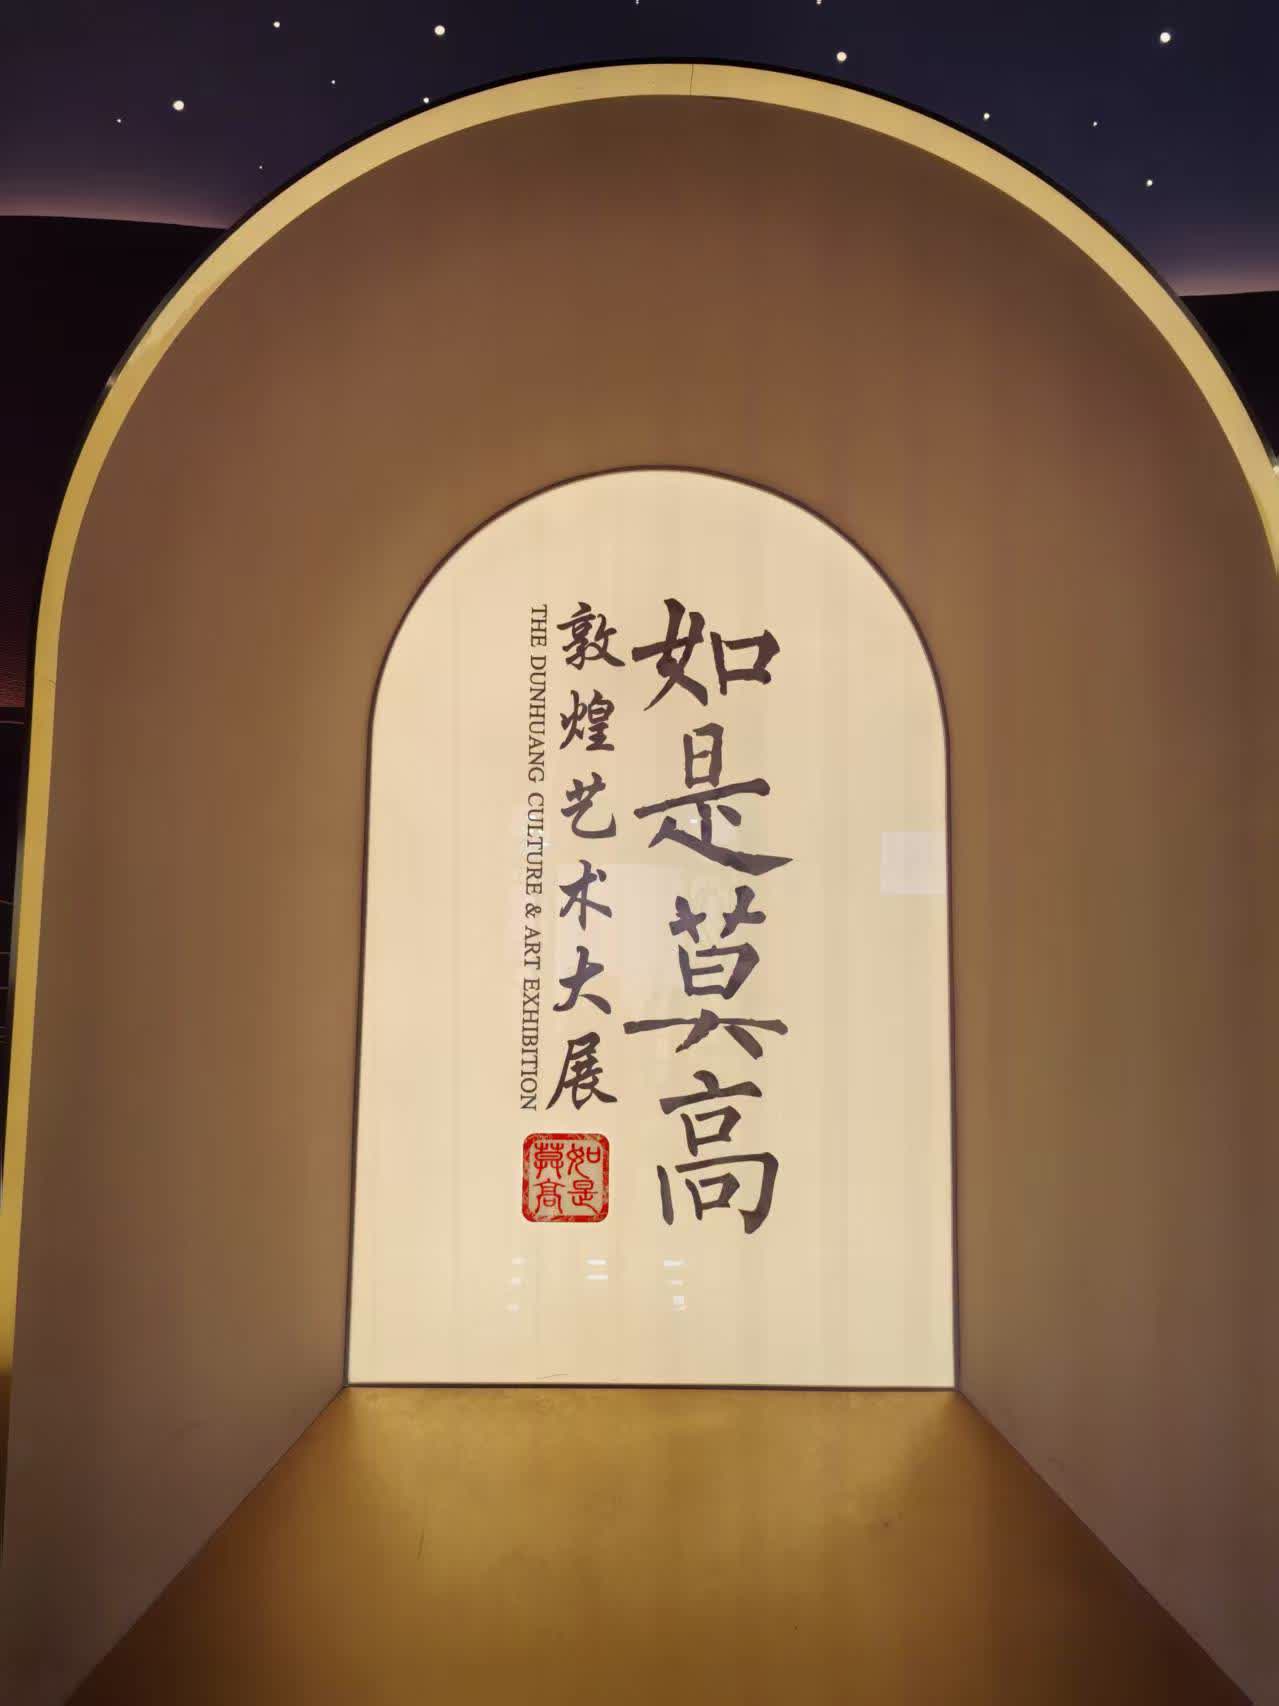 如是莫高
敦煌艺术大展
THE DUNHUANG CULTURE & ART EXHIBITION
如是
莫高